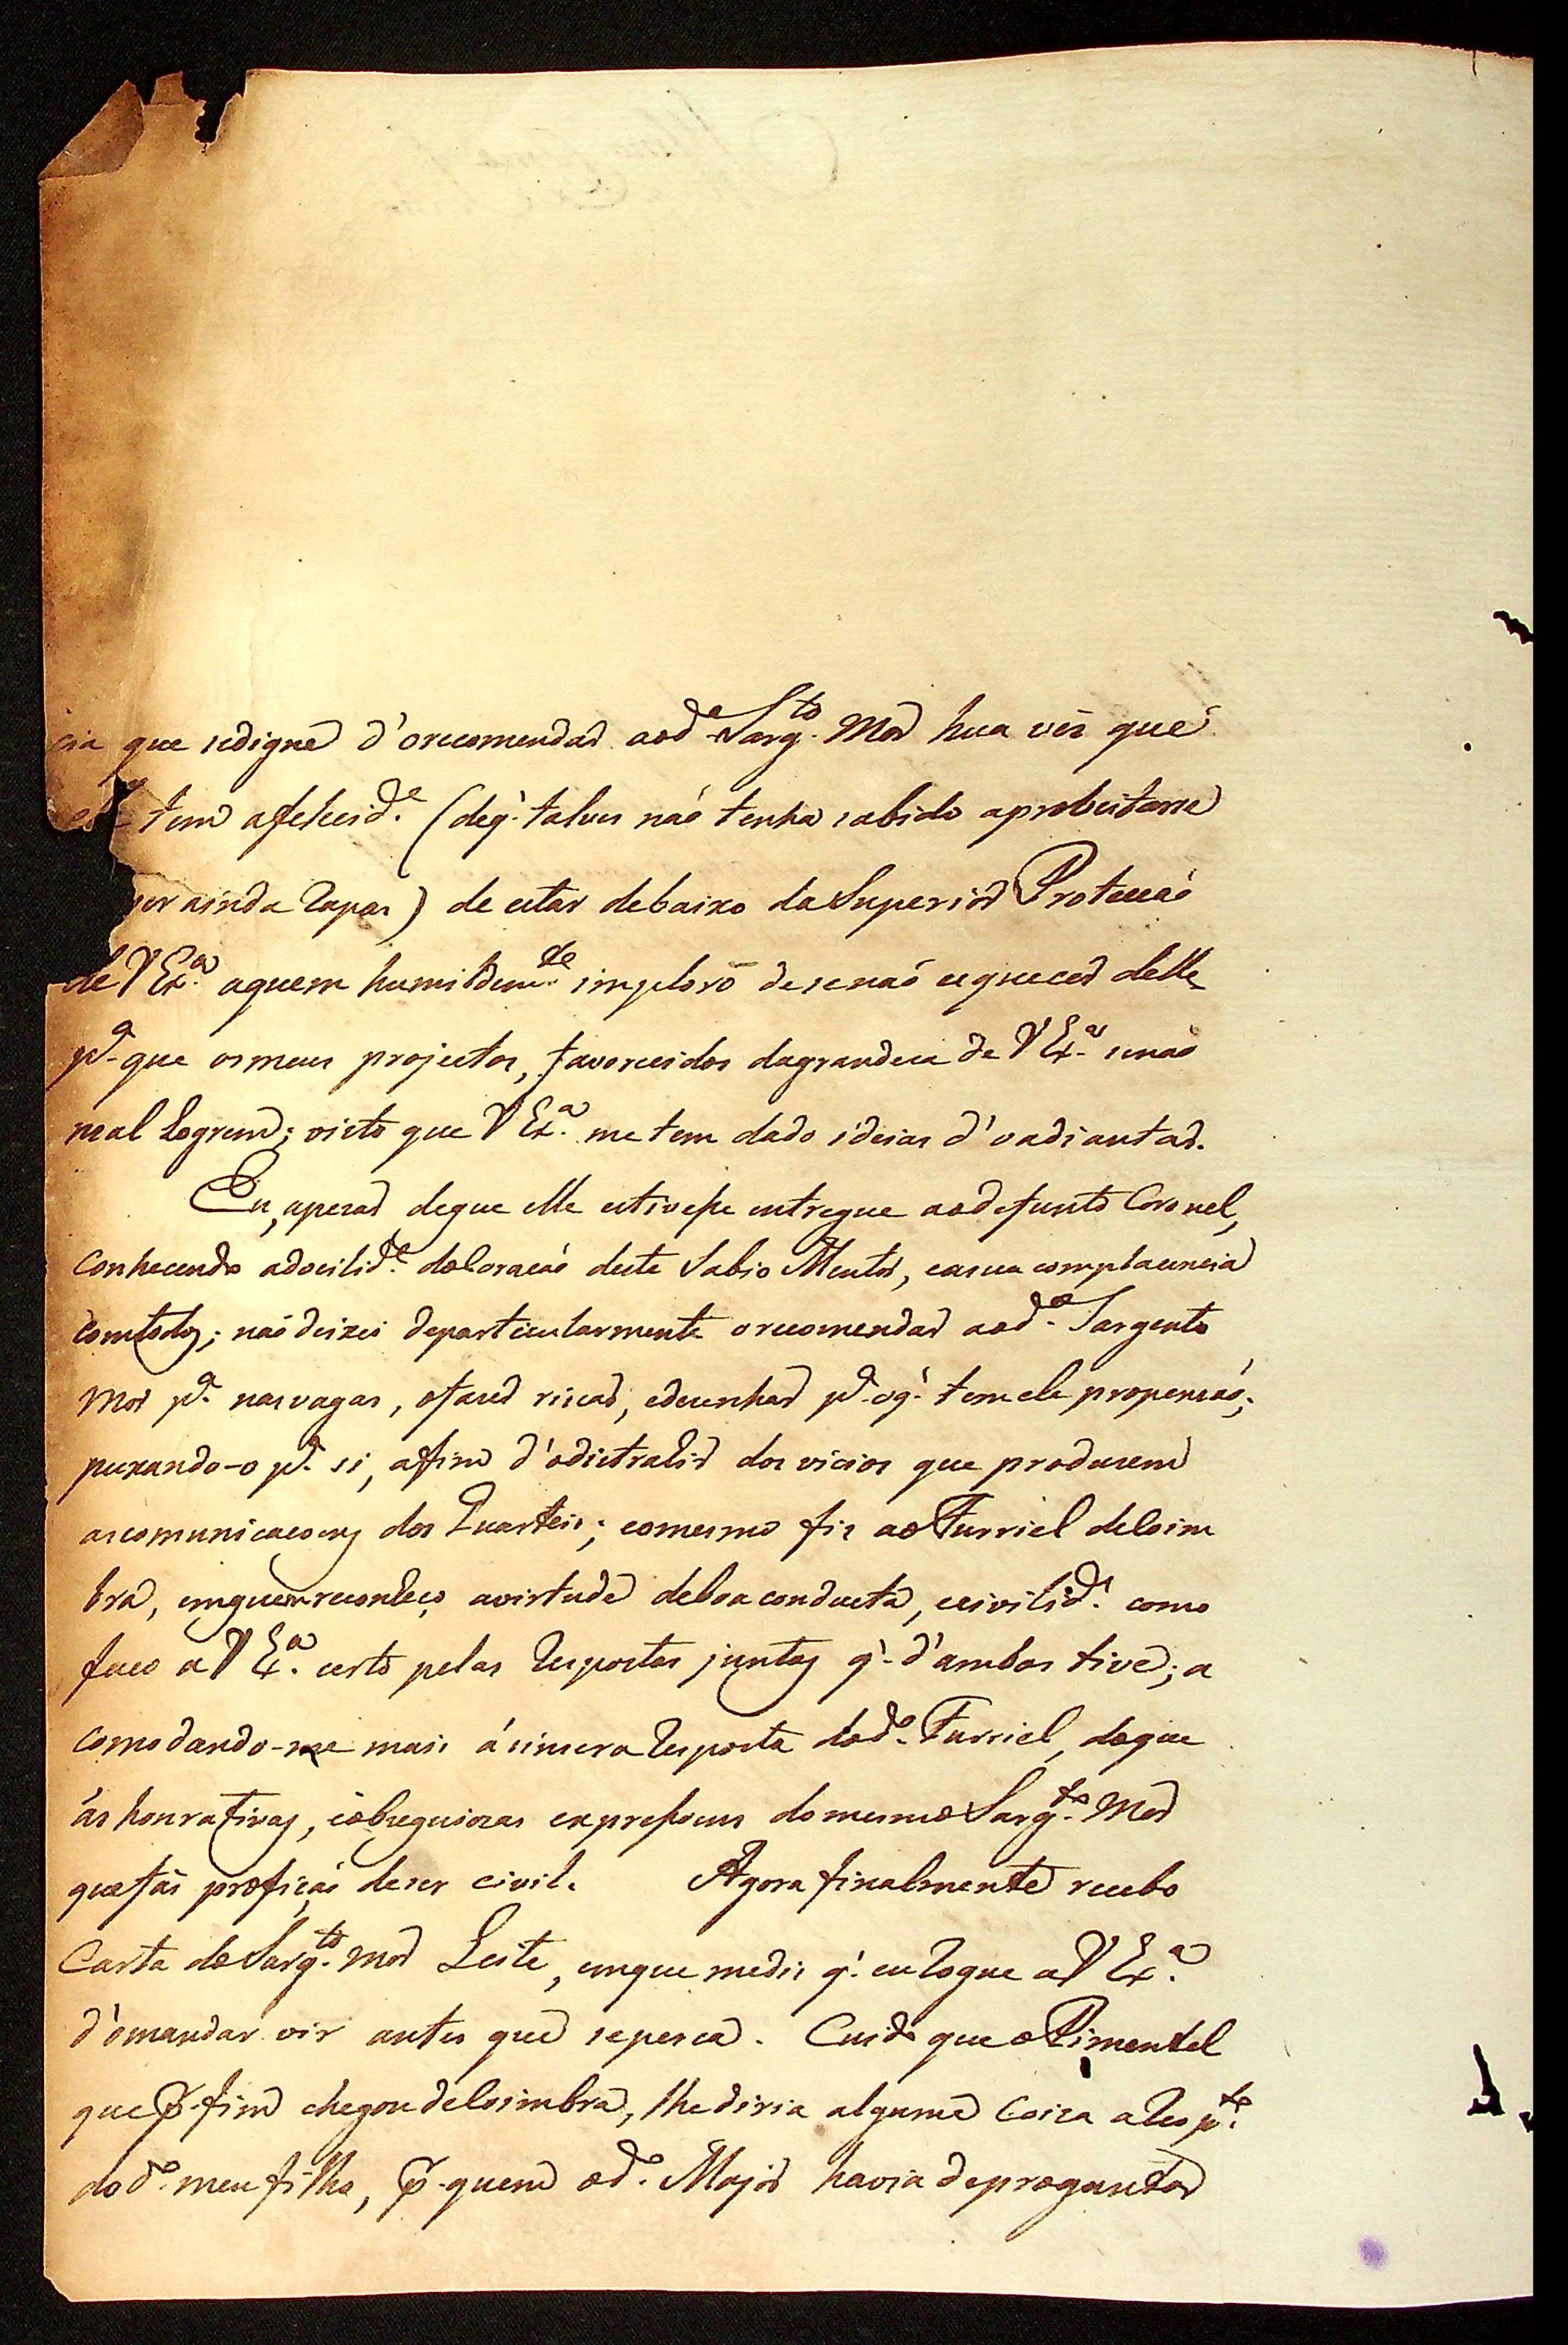 cia que sedigne d'orecomendar aod.º Sarg.to Mor hua vês que
tem afelicid.e (deq.' talves naõ tenha sabido aproveitarse
por ainda Rapas) de estar debaixo da Superior Protecçaõ
de V Ex.ª aquem humildem.te imploro de senaõ esquecer delle
p.ª que osmeus projectos, favorecidos dagrandeza de V Ex.ª senaõ
mal logrem; visto que V Ex.ª me tem dado ideias d'oadiantar.
Eu, apezar deque elle estivesse entregue aodefunto Coronel,
Conhecendo adocilid.e doCoraçaõ deste Sabio Mentor, easua complacencia
comtodos; naõ deixei departicularmente orecomendar aod.º Sargento
Mor p.ª nasvagas, ofazer riscar, edezenhar p.ª oq.' tem ele propensaõ;
puxando-o p.ª si, afim d'odistrahir dos vicios que produzem
ascomunicaçoens dos Quarteis; eomesmo fiz aoFurriel deCoim
bra, emquem reconheço avirtude deboa conducta, ecivilid.e como
faço a V Ex.ª certo pelas Respostas juntas q.' d'ambos tive; a
comodando-me mais ásincera Resposta dod.º Furriel, doque
ás honrativas, eobsequiozas expressoens domesmo Sarg.to Mor
quefás profiçaõ deser civil. Agora finalmente recebo
Carta doSarg.to Mor Leite, emque mediz q.' eu Rogue aV Ex.ª
d'omandar vir antes que seperca. Cuido que oPimentel
que p.r fim chegou deCoimbra, lhediria alguma Coiza aResp.to
dod.º meu filho, p.r quem od.º Major havia deproguntar